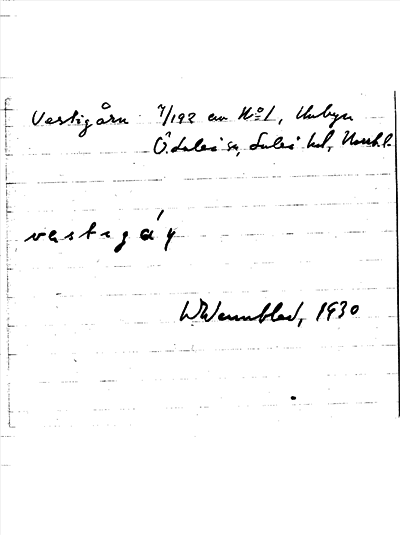 Vestigårn 7/192 av No 1, Unbyn
Ö. Luleå sn, Luleå td, Norrb. l.
vestɩgá̊ɳ
W Wennblad, 1930